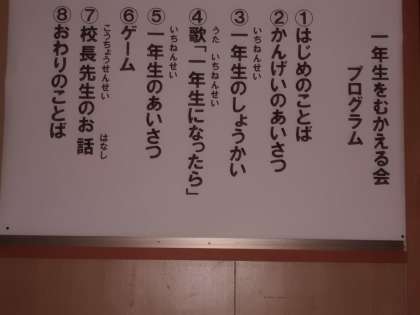 一年生をむかえる会
プログラム
①はじめのことば
②かんげいのあいさつ
いちねんせい
③一年生のしょうかい
うた いちねんせい
④歌「一年生になったら」
いちねんせい
⑤一年生のあいさつ
⑥ゲーム
こうちょうせんせい はなし
⑦校長先生のお話
⑧おわりのことば